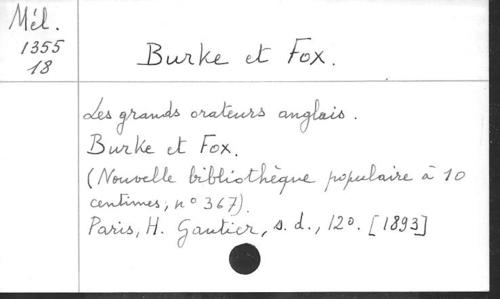 Mél.
1355
18
Burke et Fox.
Les grands orateurs anglais.
Burke et Fox.
(Nouvelle bibliothèque populaire à 10
centimes, n° 367).
Paris, H. Gautier, s. d., 12°. [1893]